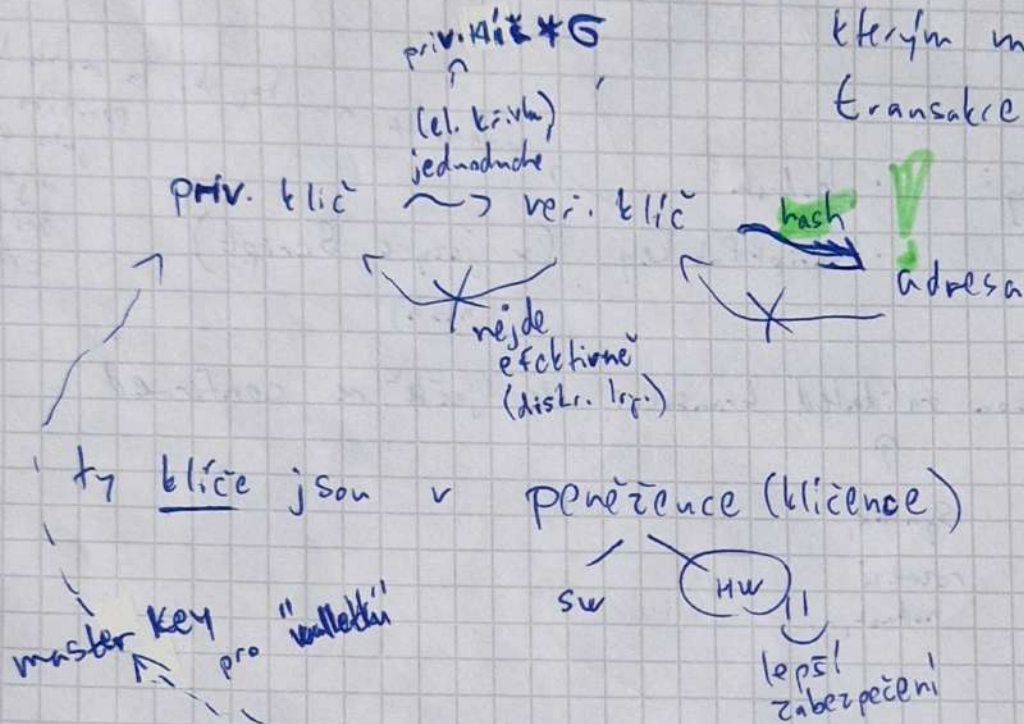 priv. klíč * G
kterým m
transakce
(el. křivka)
jednoduché
priv. klíč → veř. klíč
hash
!
adresa
nejde
efektivně
(diskr. log.)
ty klíče jsou v peněžence (klíčence)
SW
HW
!!
lepší
zabezpečení
master key
pro